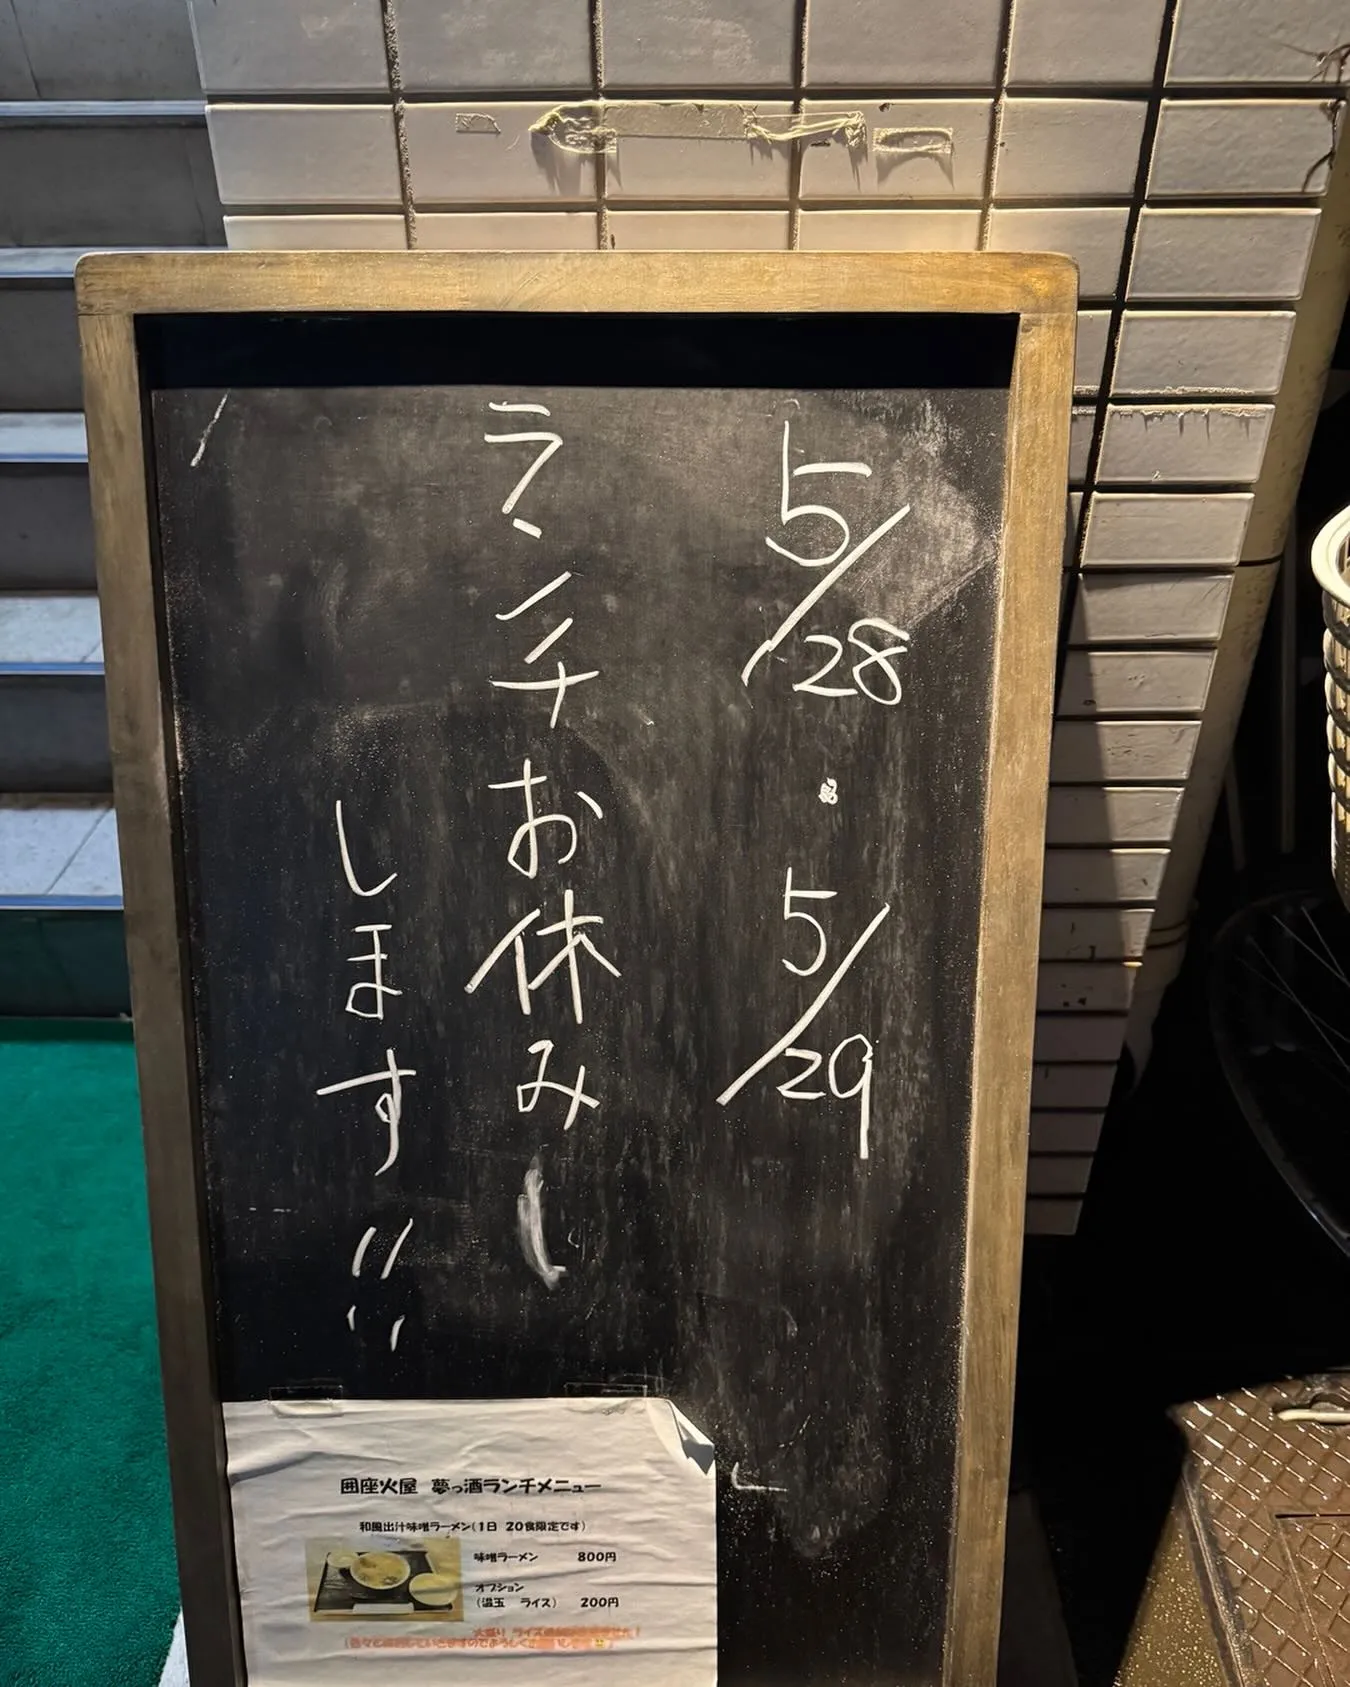 5/28・5/29
ランチお休み
します!!
囲座火屋 夢っ酒ランチメニュー
和風出汁味噌ラーメン(1日 20食限定です)
味噌ラーメン 800円
オプション
(温玉 ライス) 200円